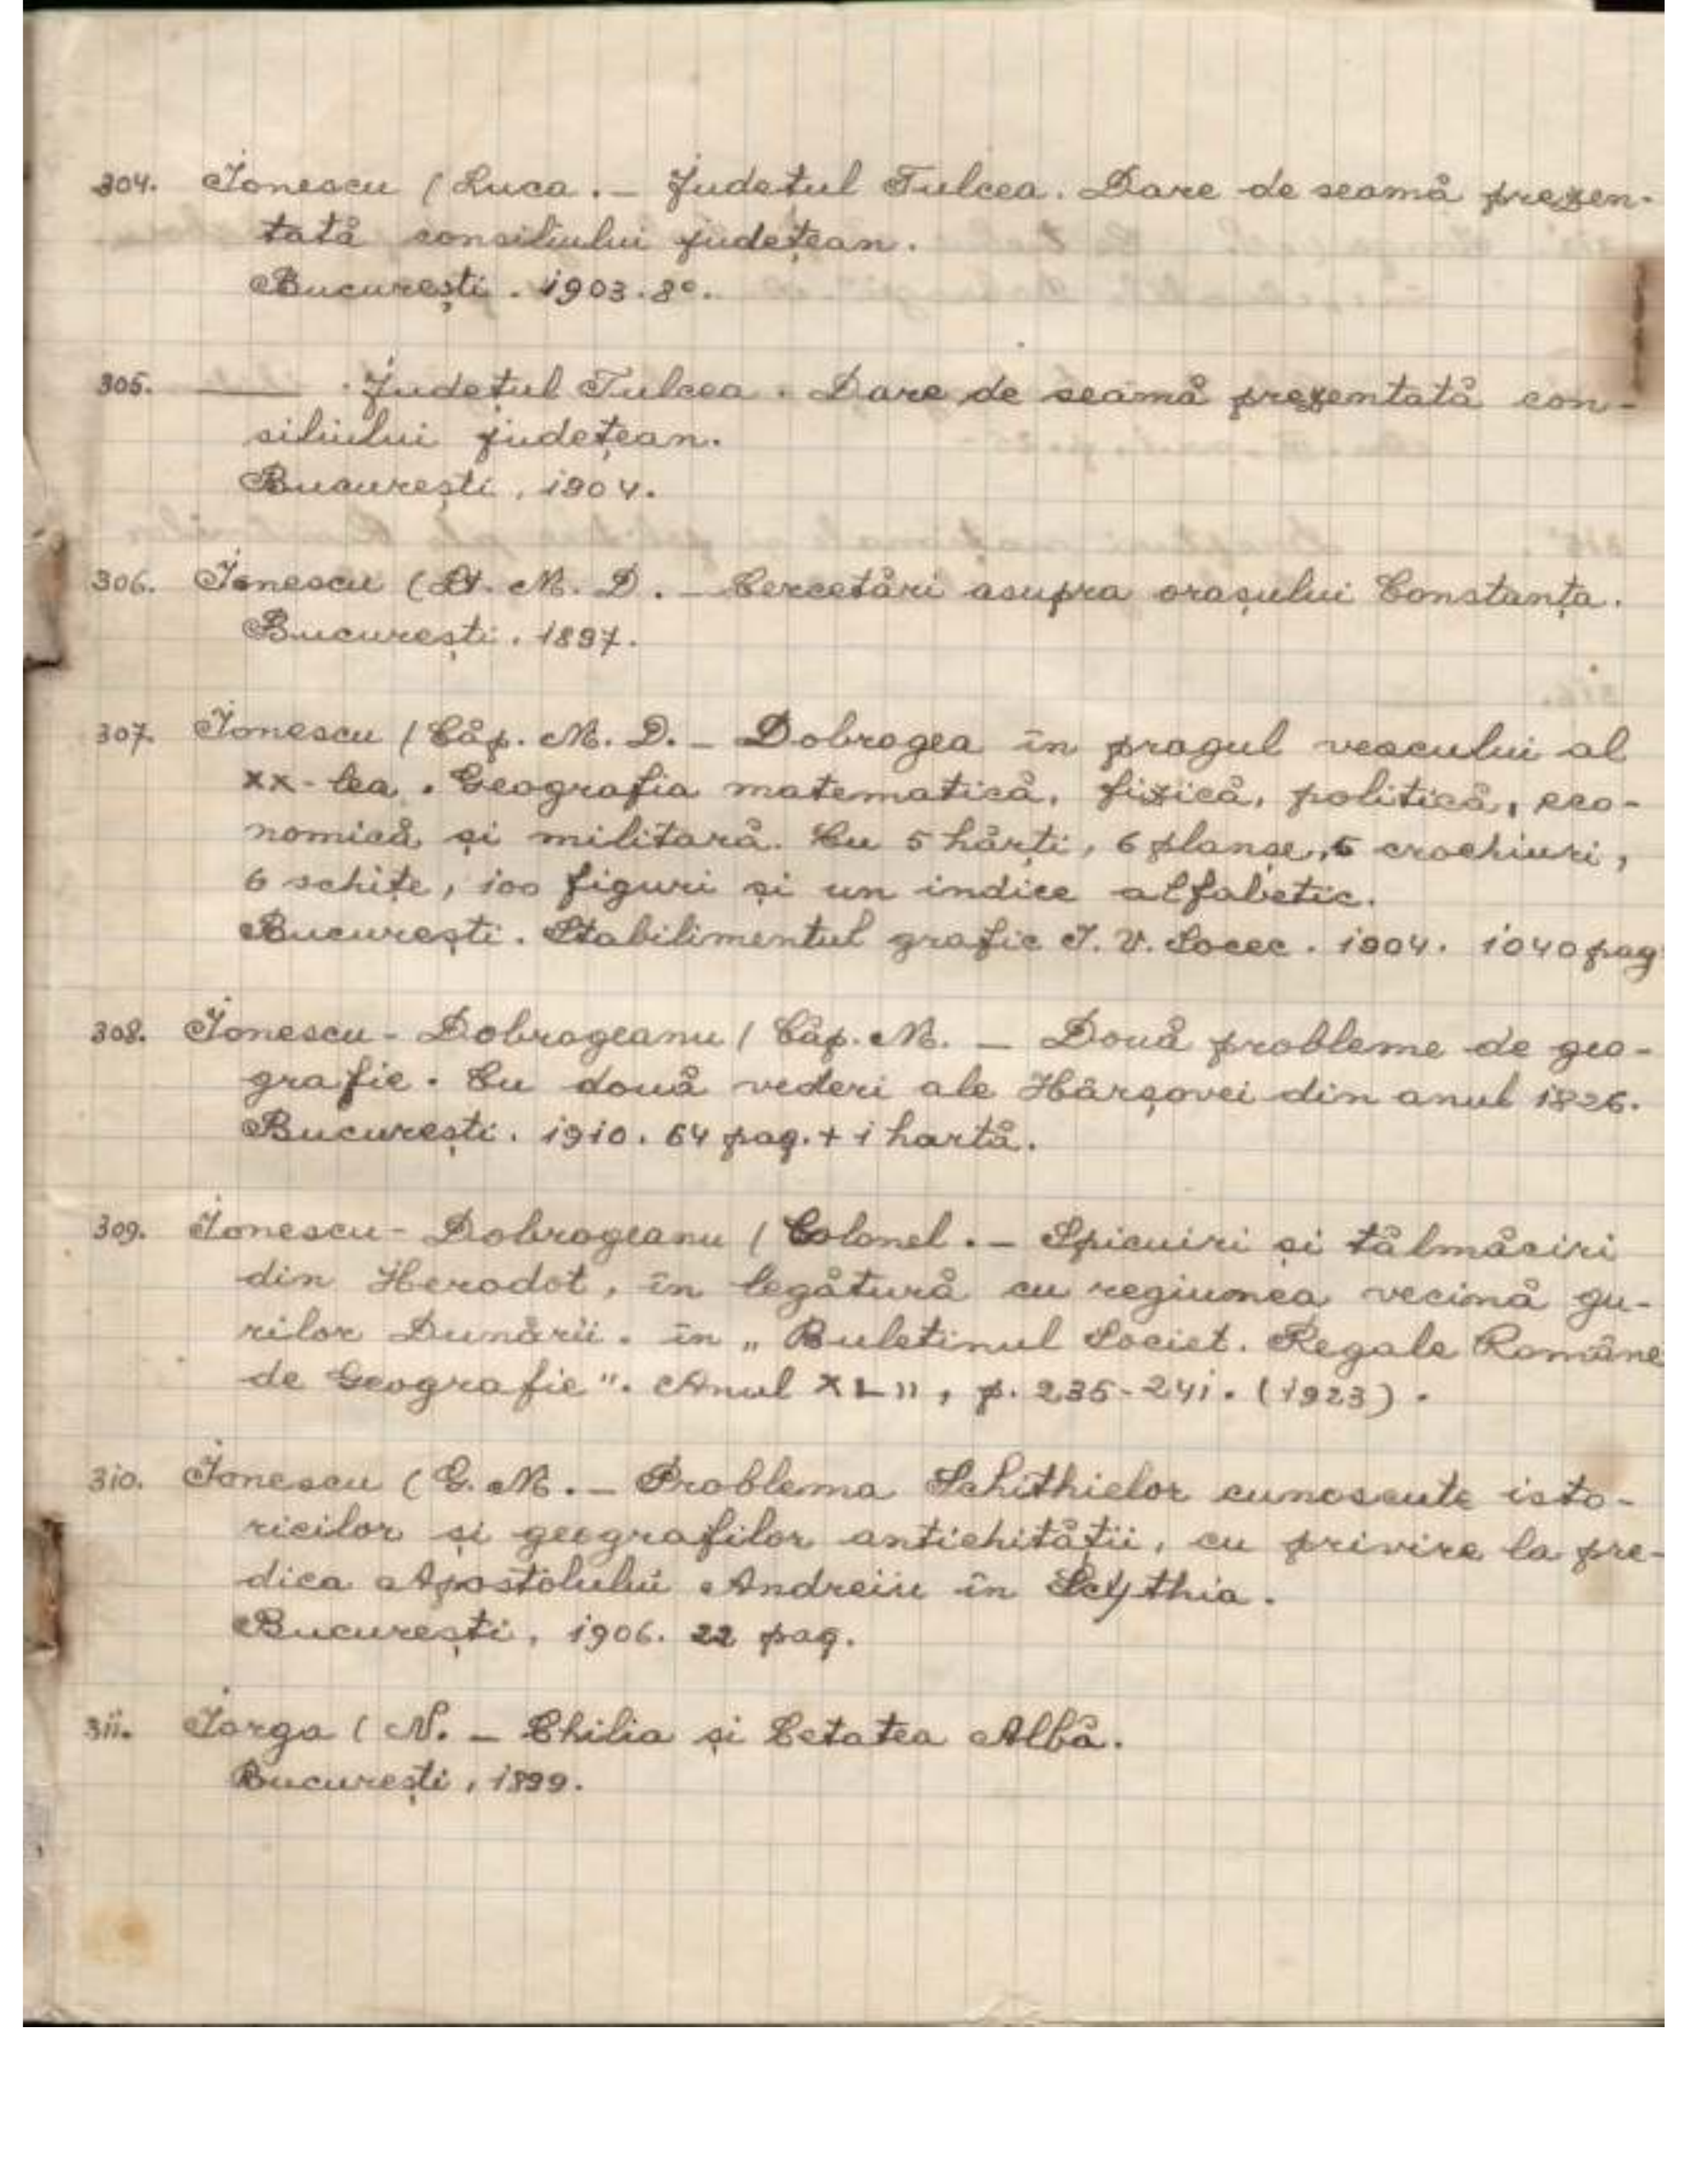 304. Ionescu (Luca. — Judetul Tulcea. Dare de seamă prezen-
tată consiliului județean.
București. 1903. 8°.
305. —— . Județul Tulcea. Dare de seamă prezentată con-
siliului județean.
București, 1904.
306. Ionescu (Lt. M. D. — Cercetări asupra orașului Constanța.
București. 1897.
307. Ionescu (Căp. M. D. — Dobrogea în pragul veacului al
XX-lea. Geografia matematică, fizică, politică, eco-
nomică și militară. Cu 5 hărți, 6 planșe, 5 crochiuri,
6 schițe, 100 figuri și un indice alfabetic.
București. Stabilimentul grafic I. V. Socec. 1904. 1040 pag.
308. Ionescu-Dobrogeanu (Căp. M. — Două probleme de geo-
grafie. Cu două vederi ale Hârșovei din anul 1826.
București. 1910. 64 pag. + 1 hartă.
309. Ionescu-Dobrogeanu (Colonel. — Spicuiri și tălmăciri
din Herodot, în legătură cu regiunea vecină gu-
rilor Dunării. în „Buletinul Societ. Regale Române
de Geografie". Anul XLII, p. 235-241. (1923).
310. Ionescu (G. M. — Problema Schithielor cunoscute isto-
ricilor și geografilor antichității, cu privire la pre-
dica Apostolului Andreiu în Scythia.
București, 1906. 22 pag.
311. Iorga (N. — Chilia și Cetatea Albă.
București, 1899.